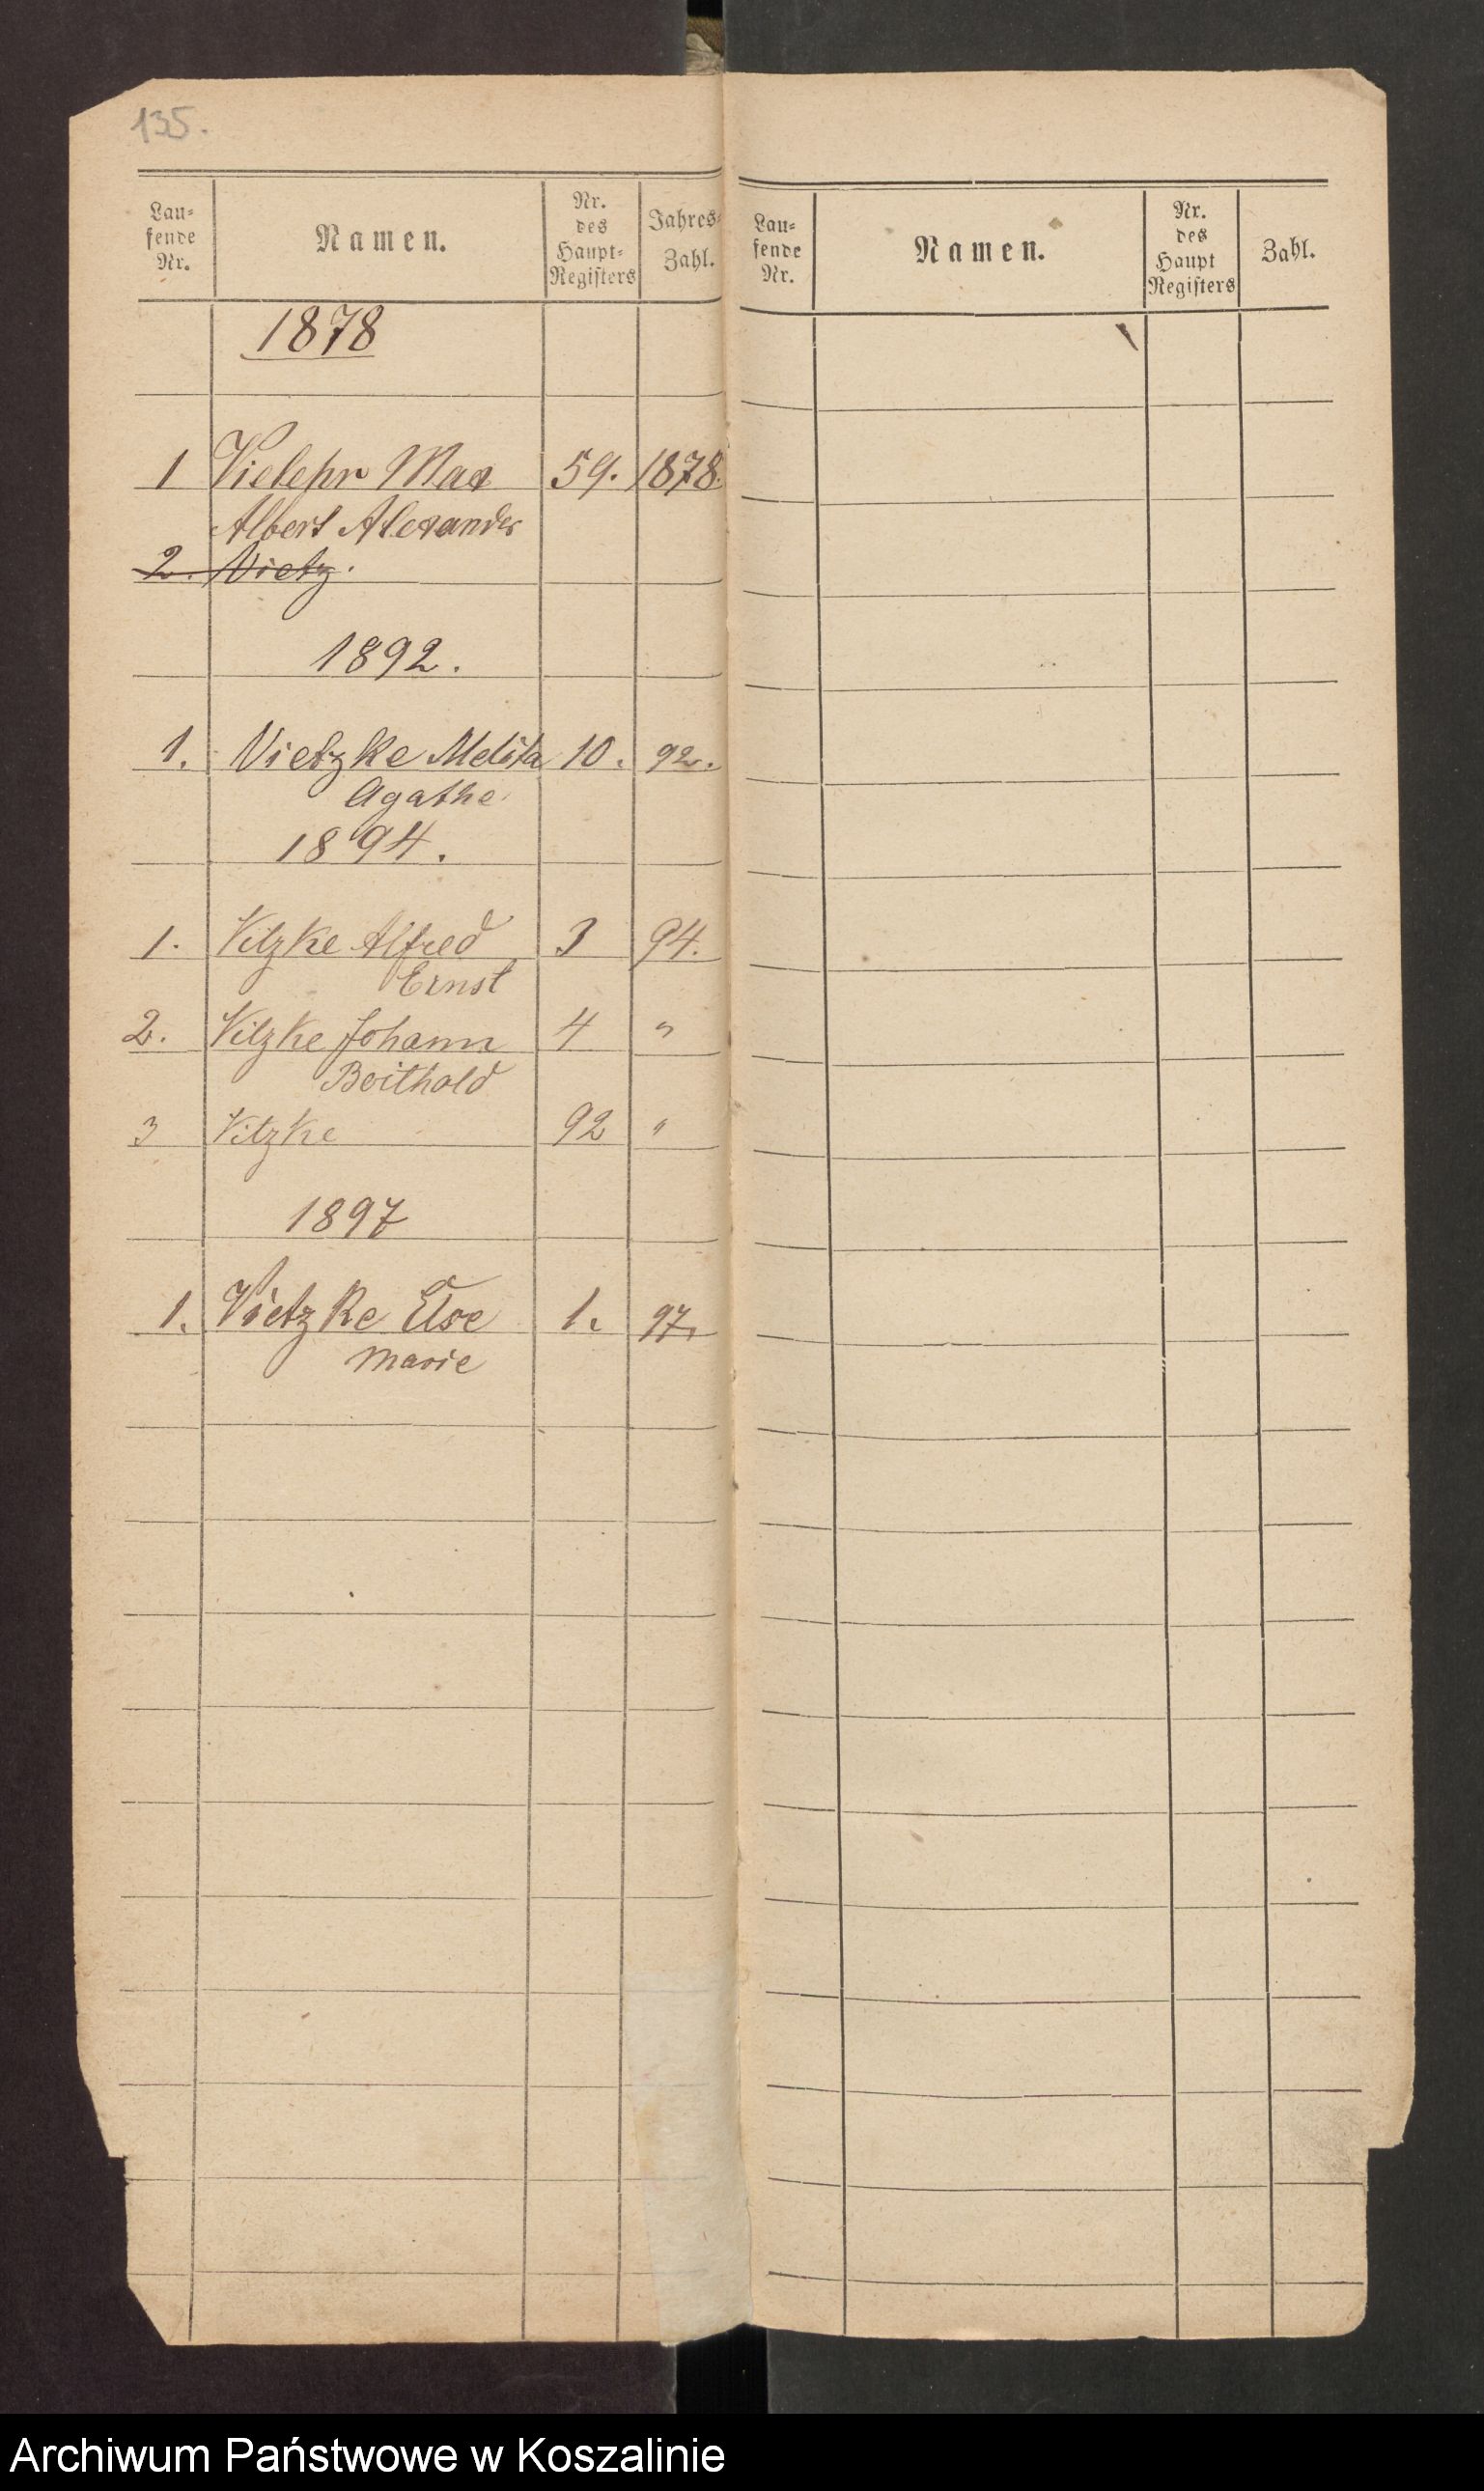 135.
Lau-
fende
Nr.
Namen.
Nr.
des
Haupt-
Registers
Jahres-
Zahl.
1878
1 Vielehr Max 59. 1878.
Albert Alexander
2. Vietz.
1892.
1. Vietzke Melita 10. 92.
Agathe
1894.
1. Vitzke Alfred 3 94.
Ernst
2. Vitzke Johann 4 "
Berthold
3 Vitzke 92 "
1897
1. Vietzke Else 1. 97.
Marie
Lau-
fende
Nr.
Namen.
Nr.
des
Haupt
Registers
Zahl.
Archiwum Państwowe w Koszalinie